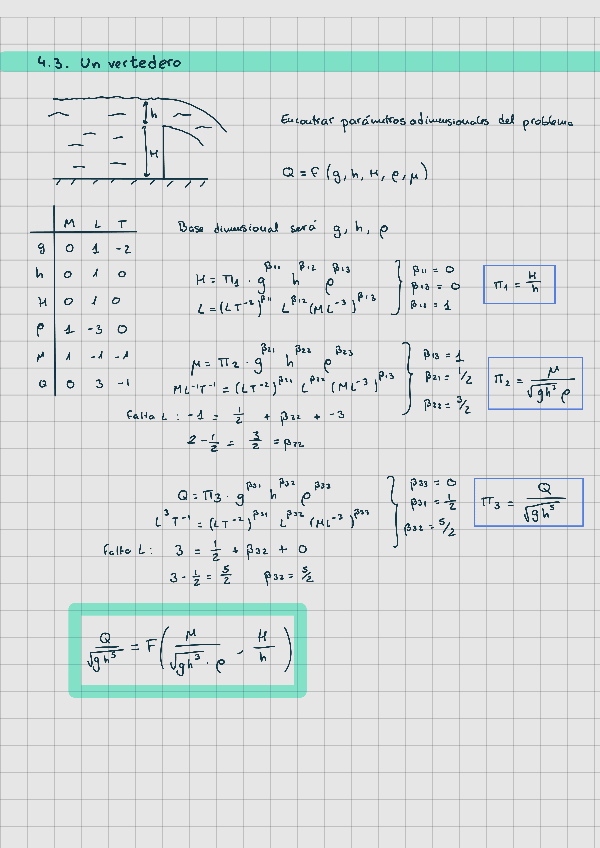 4.3. Un vertedero
h
H
Encontrar parámetros adimensionales del problema
Q = f (g, h, H, ρ, μ)
M L T
g 0 1 -2
h 0 1 0
H 0 1 0
ρ 1 -3 0
μ 1 -1 -1
Q 0 3 -1
Base dimensional será g, h, ρ
H = Π₁ · g^β₁₁ h^β₁₂ ρ^β₁₃
L = (LT⁻²)^β₁₁ L^β₁₂ (ML⁻³)^β₁₃
β₁₁ = 0
β₁₃ = 0
β₁₂ = 1
Π₁ = H/h
μ = Π₂ · g^β₂₁ h^β₂₂ ρ^β₂₃
ML⁻¹T⁻¹ = (LT⁻²)^β₂₁ L^β₂₂ (ML⁻³)^β₁₃
β₁₃ = 1
β₂₁ = 1/2
β₂₂ = 3/2
Π₂ = μ/(√gh³ ρ)
falta L : -1 = 1/2 + β₂₂ + -3
2 - 1/2 = 3/2 = β₂₂
Q = Π₃ · g^β₃₁ h^β₃₂ ρ^β₃₃
L³T⁻¹ = (LT⁻²)^β₃₁ L^β₃₂ (ML⁻³)^β₃₃
β₃₃ = 0
β₃₁ = 1/2
β₃₂ = 5/2
Π₃ = Q/√gh⁵
falta L : 3 = 1/2 + β₃₂ + 0
3 - 1/2 = 5/2 β₃₂ = 5/2
Q/√gh⁵ = F(μ/(√gh³ · ρ) , H/h)